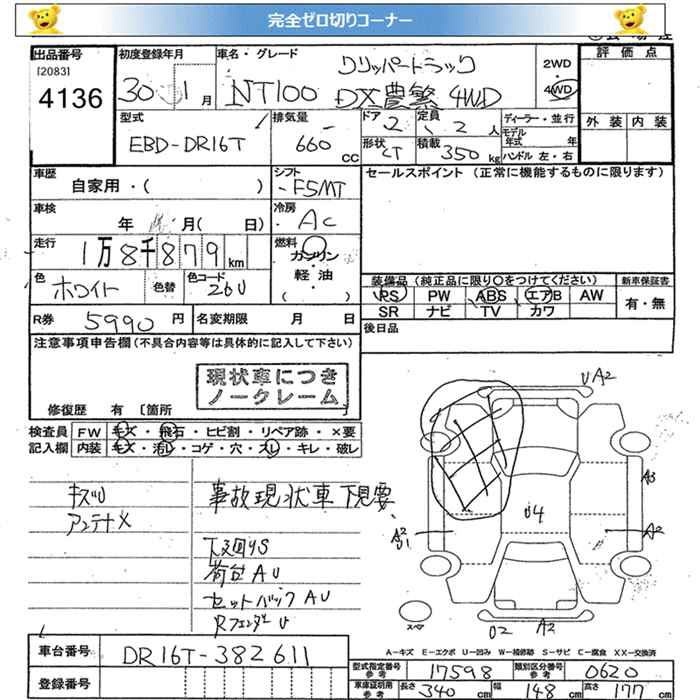 完全ゼロ切りコーナー
出品番号 初度登録年月 車名・グレード クリッパートラック 2WD 評価点
[2083]
4136 30 1月 NT100 DX農繁4WD 4WD
型式 排気量 ドア 定員 ディーラー・並行 外装 内装
EBD-DR16T 660 CC 2 2人 モデル年式 年式
形状 CT 積載 350kg ハンドル 左・右
車歴 シフト セールスポイント (正常に機能するものに限ります)
自家用・( ) F5MT
車検 冷房
年 月( 日) AC
走行 燃料
1万8千879km ガソリン
軽油
( )
色 ホワイト 色替 色コード 26U
装備品 (純正品に限り○をつけてください) 新車保証書
PS PW ABS エアB AW 有・無
SR ナビ TV カワ
R券 5990円 名変期限 月 日 後日品
注意事項申告欄 (不具合内容等は具体的に記入して下さい)
現状車につき
ノークレーム
修復歴 有 [箇所 ]
検査員 FW キズ・飛石・ヒビ割・リペア跡・×要
記入欄 内装 キズ・汚レ・コゲ・穴・スレ・キレ・破レ
キズU 事故現状車下見要
アンテナX
下廻りS
荷台AU
セットバックAU
RフェンダーU
UA2
A3
U4
A2
U1
A2
スペア
U2 A2
A-キズ E-エクボ U-凹み W-補修跡 S-サビ C-腐食 XX-交換済
車台番号 DR16T-382611
型式指定番号 参考 17598 類別区分番号 参考 0620
登録番号
車庫証明用 参考 長さ 340cm 幅 148cm 高さ 177cm